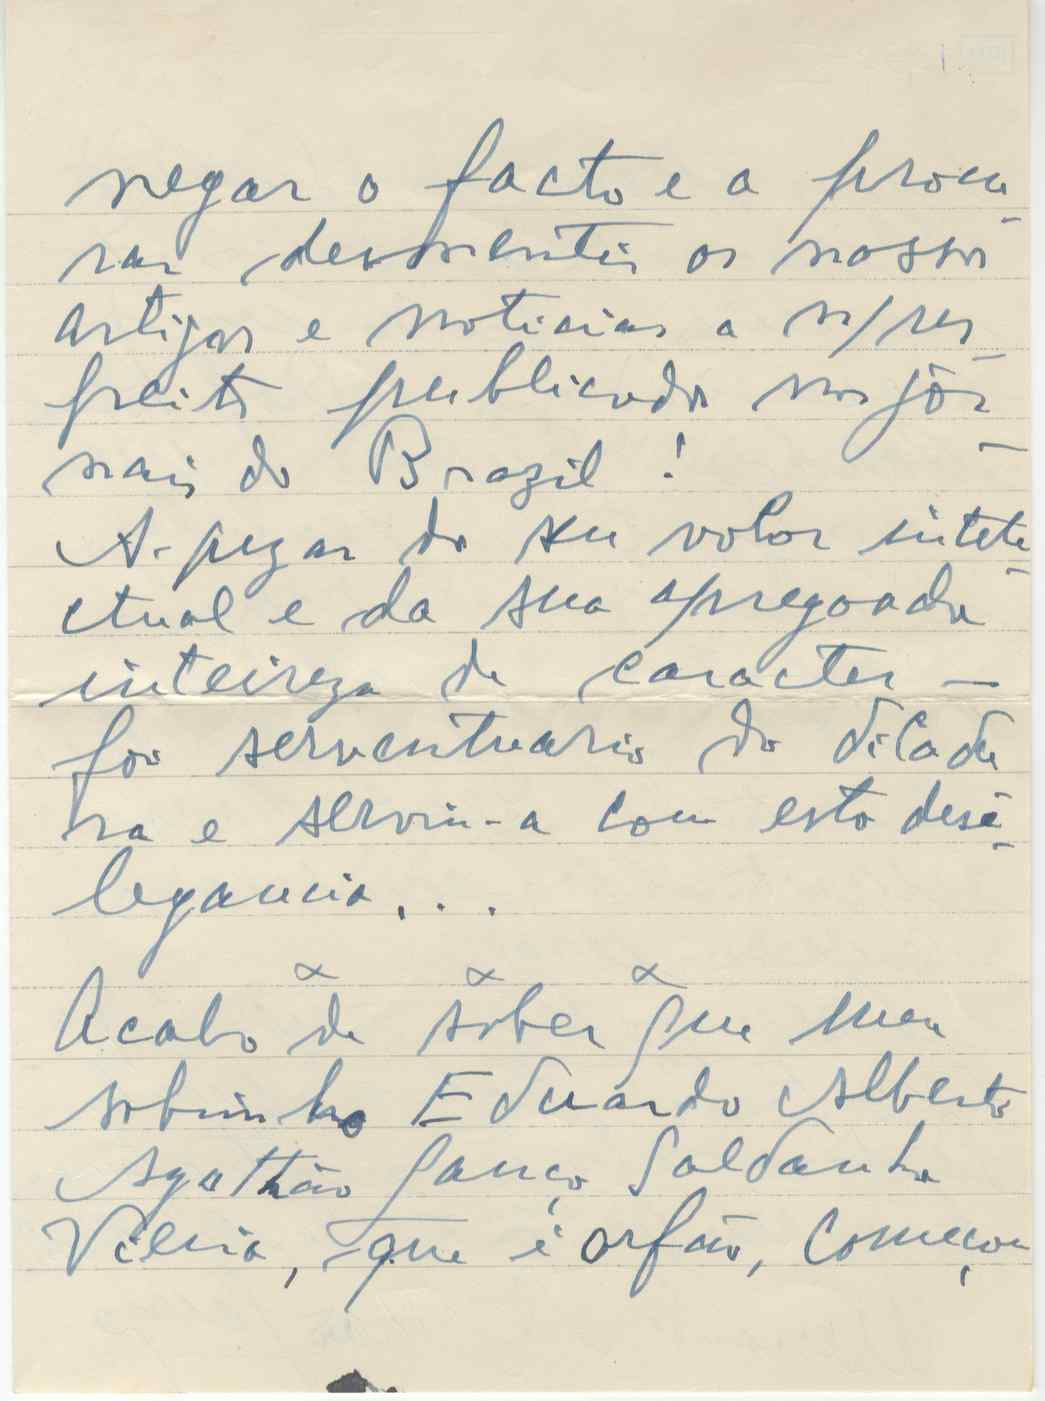 negar o facto e a procu
rar desmentir os nossos
artigos e noticias a n/res
peito publicados nos jor
nais do Brazil !
A-pezar do seu valor intele
ctual e da sua apregoada
inteireza de caracter —
foi serventuario da ditadu
ra e serviu-a com esta dese
legancia...
x x x
Acabo de saber que meu
sobrinho Eduardo Alberto
Agathão Lanço Saldanha
Vieira, que é orfão, começou